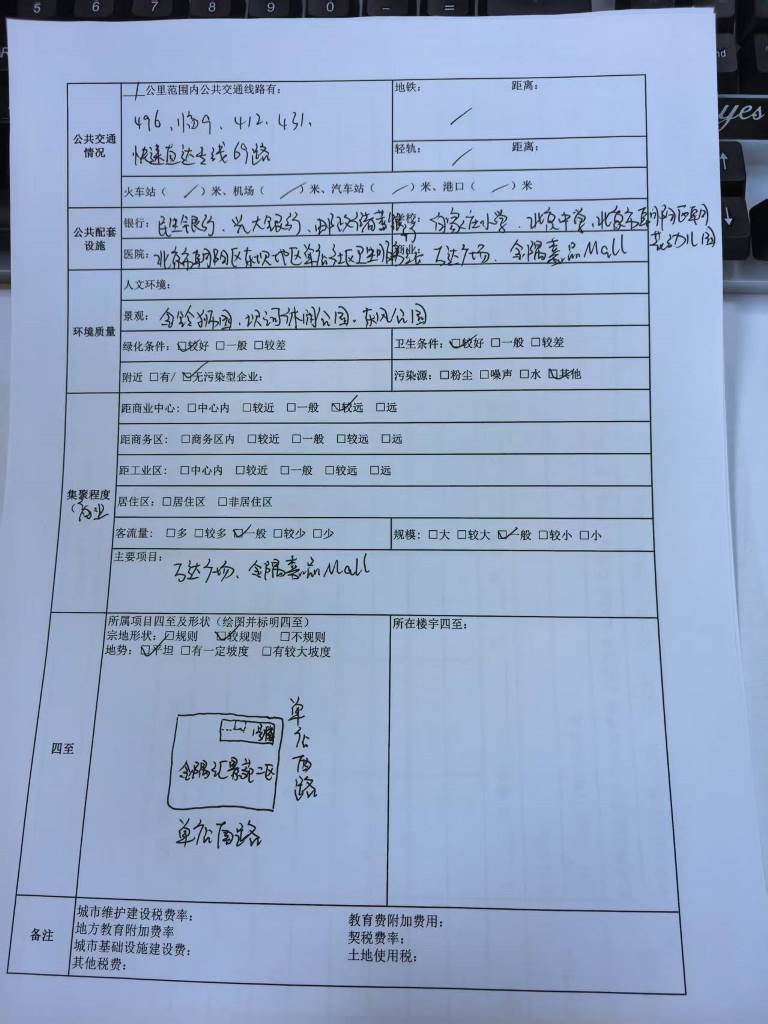 5 6 7 8 9 0 - =
yes
1 公里范围内公共交通线路有: 地铁: / 距离:
496、 412、431、
快速直达专线69路
公共交通情况
轻轨: / 距离:
火车站( / )米、机场( / )米、汽车站( / )米、港口( / )米
公共配套设施
银行: 民生银行、光大银行、邮政储蓄 小学、北京中学、北京市朝阳区朝花幼儿园
医院: 北京市朝阳区东坝地区单店社区卫生服务 商业: 万达广场、金隅嘉品Mall
环境质量
人文环境:
景观: 公园、坝河休闲公园、东风公园
绿化条件: ☑较好 □一般 □较差 卫生条件: ☑较好 □一般 □较差
附近 □有/ ☑无污染型企业: 污染源: □粉尘 □噪声 □水 ☑其他
集聚程度(商业
距商业中心: □中心内 □较近 □一般 ☑较远 □远
距商务区: □商务区内 □较近 □一般 □较远 □远
距工业区: □中心内 □较近 □一般 □较远 □远
居住区: □居住区 □非居住区
客流量: □多 □较多 ☑一般 □较少 □少 规模: □大 □较大 ☑一般 □较小 □小
主要项目: 万达广场、金隅嘉品Mall
四至
所属项目四至及形状(绘图并标明四至) 所在楼宇四至:
宗地形状: □规则 ☑较规则 □不规则
地势: ☑平坦 □有一定坡度 □有较大坡度
单店西路
金隅汇景苑二区
单店南路
备注
城市维护建设税费率: 教育费附加费用:
地方教育附加费率 契税费率:
城市基础设施建设费: 土地使用税:
其他税费: